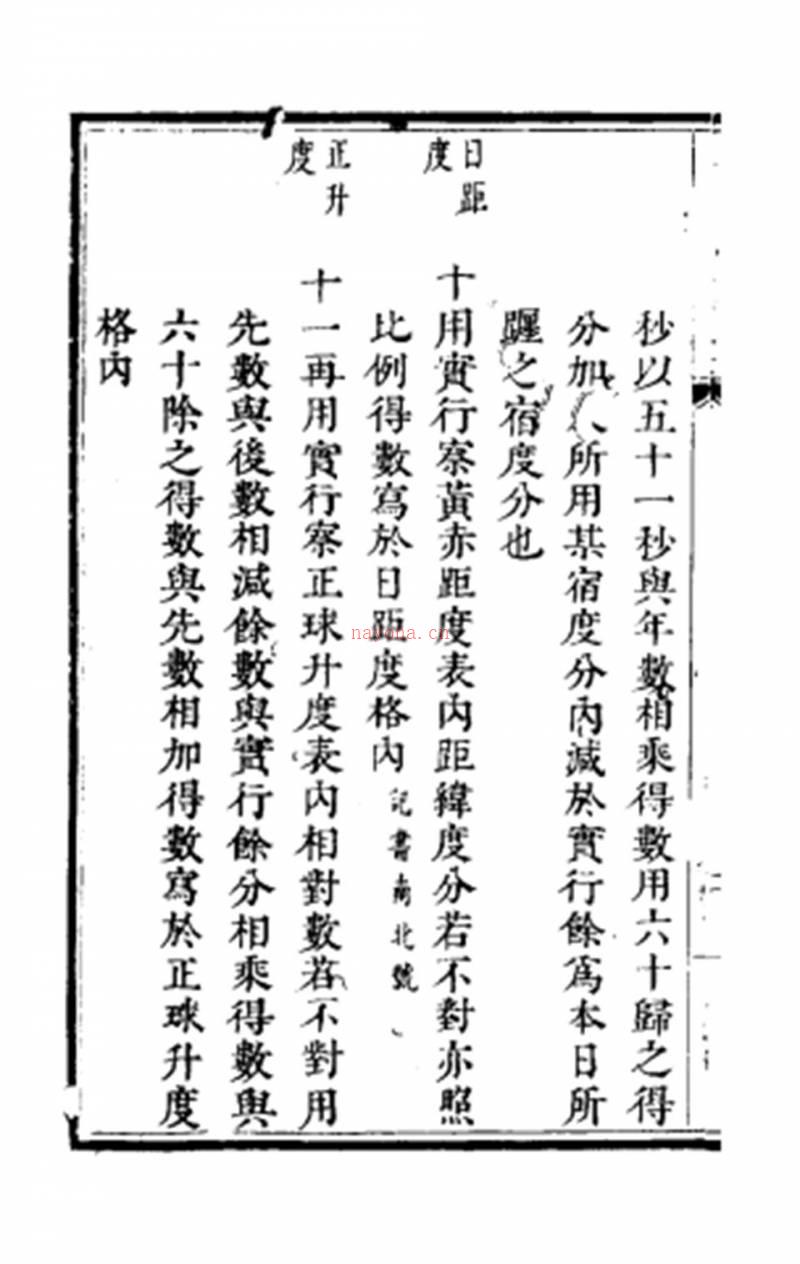 秒以五十一秒與年數相乘得數用六十歸之得
分加入所用某宿度分內減於實行餘為本日所
躔之宿度分也
日距
度
十用實行察黃赤距度表內距緯度分若不對亦照
比例得數寫於日距度格內
記書南北號
正升
度
十一再用實行察正球升度表內相對數若不對用
先數與後數相減餘數與實行餘分相乘得數與
六十除之得數與先數相加得數寫於正球升度
格內
nayona.cn